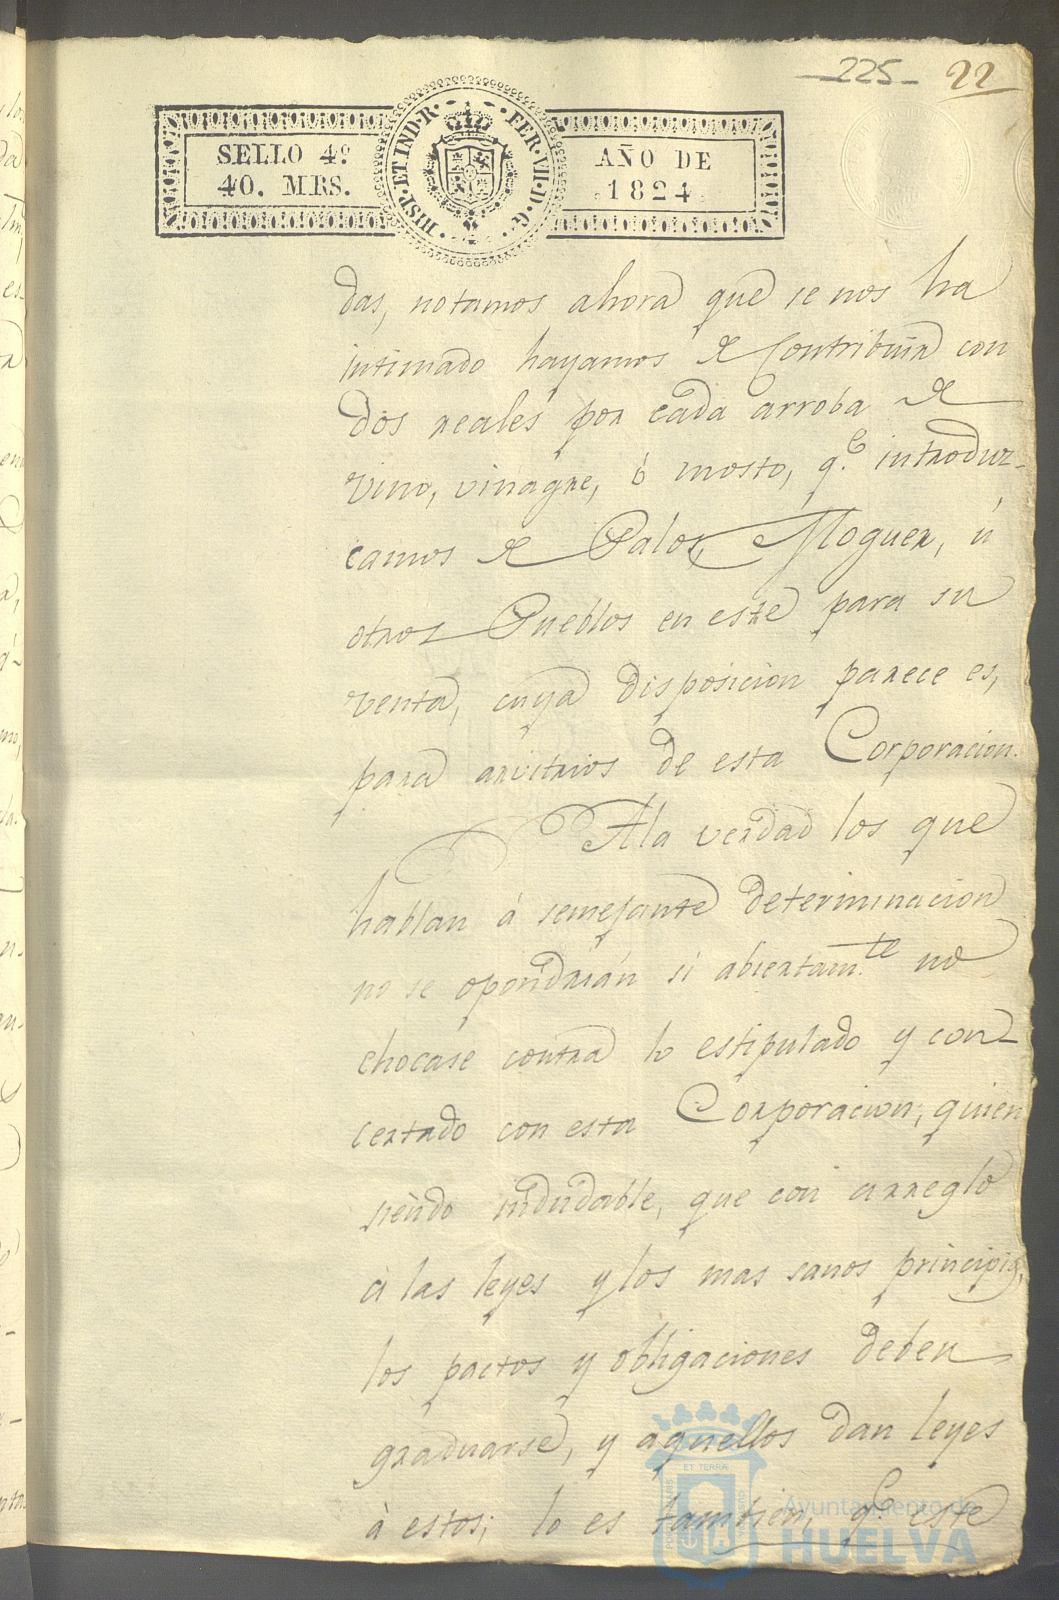 225 22
SELLO 4º
40. MRS.
HISP. ET IND. R. FER. VII. D. G.
AÑO DE
1824
das, notamos ahora que se nos ha
intimado hayamos de Contribuir con
dos reales por cada arroba de
vino, vinagre, ó mosto, q.e introduz-
camos de Palos, Moguer, ú
otros Pueblos en este para su
venta, cuya disposicion parece es,
para arvitrios de esta Corporacion.
A la verdad los que
hablan á semejante determinacion
no se opondrián si abiertam.te no
chocase contra lo estipulado y con-
certado con esta Corporacion; quien
siendo indudable, que con arreglo
á las leyes y los mas sanos principios,
los pactos y obligaciones deben
graduarse, y aquellos dan leyes
à estos; lo es tambien, q.e este
ET TERRÆ
Ayuntamiento de
HUELVA